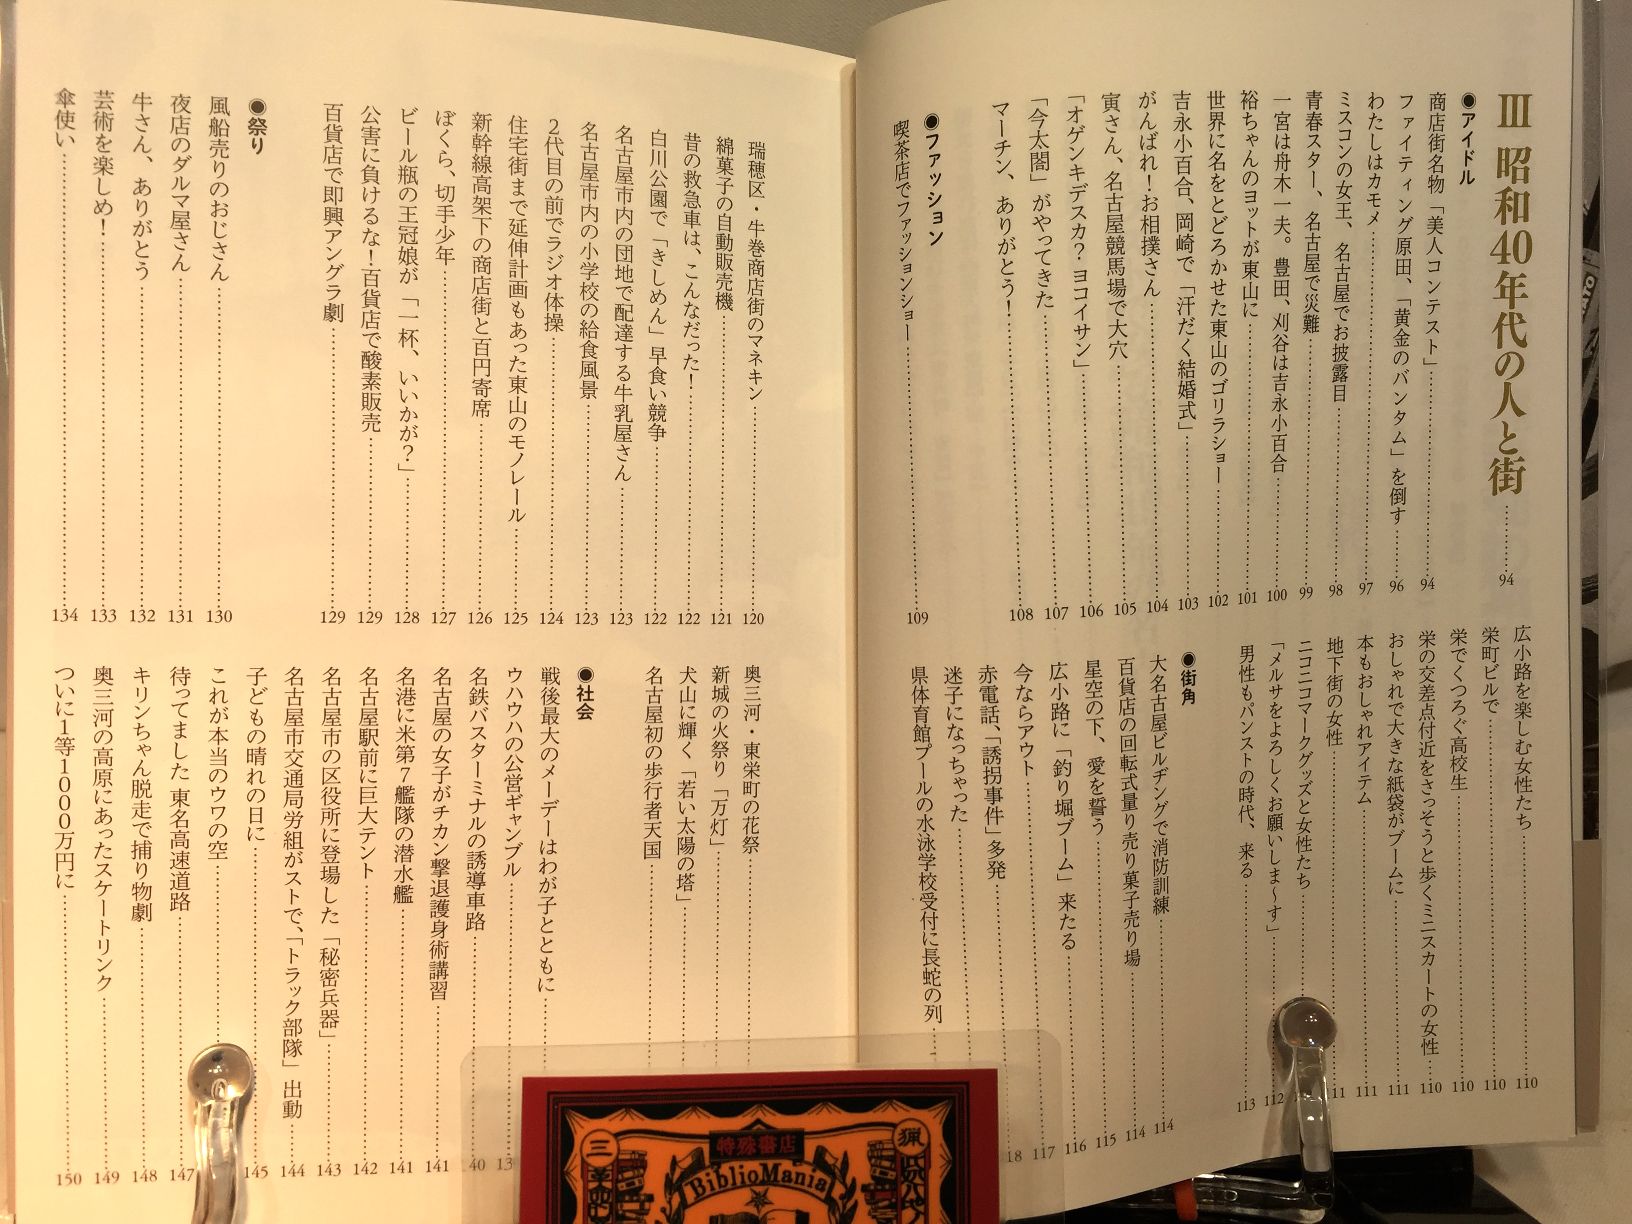 III 昭和40年代の人と街……94
●アイドル
商店街名物「美人コンテスト」……94
ファイティング原田、「黄金のバンタム」を倒す……96
わたしはカモメ……97
ミスコンの女王、名古屋でお披露目……98
青春スター、名古屋で災難……99
一宮は舟木一夫。豊田、刈谷は吉永小百合……100
裕ちゃんのヨットが東山に……101
世界に名をとどろかせた東山のゴリラショー……102
吉永小百合、岡崎で「汗だく結婚式」……103
がんばれ！お相撲さん……104
寅さん、名古屋競馬場で大穴……105
「オゲンキデスカ？ヨコイサン」……106
「今太閤」がやってきた……107
マーチン、ありがとう！……108
●ファッション
喫茶店でファッションショー……109
広小路を楽しむ女性たち……110
栄町ビルで……110
栄でくつろぐ高校生……110
栄の交差点付近をさっそうと歩くミニスカートの女性……110
おしゃれで大きな紙袋がブームに……111
本もおしゃれアイテム……111
地下街の女性……11
ニコニコマークグッズと女性たち……
「メルサをよろしくお願いしま〜す」……112
男性もパンストの時代、来る……113
●街角
大名古屋ビルヂングで消防訓練……114
百貨店の回転式量り売り菓子売り場……114
星空の下、愛を誓う……115
広小路に「釣り堀ブーム」来たる……116
今ならアウト……117
赤電話、「誘拐事件」多発……18
迷子になっちゃった……
県体育館プールの水泳学校受付に長蛇の列……
瑞穂区・牛巻商店街のマネキン……120
綿菓子の自動販売機……121
昔の救急車は、こんなだった！……122
白川公園で「きしめん」早食い競争……122
名古屋市内の団地で配達する牛乳屋さん……123
名古屋市内の小学校の給食風景……123
2代目の前でラジオ体操……124
住宅街まで延伸計画もあった東山のモノレール……125
新幹線高架下の商店街と百円寄席……126
ぼくら、切手少年……127
ビール瓶の王冠娘が「一杯、いいかが？」……128
公害に負けるな！百貨店で酸素販売……129
百貨店で即興アングラ劇……129
●祭り
風船売りのおじさん……130
夜店のダルマ屋さん……131
牛さん、ありがとう……132
芸術を楽しめ！……133
傘使い……134
奥三河・東栄町の花祭……
新城の火祭り「万灯」……
犬山に輝く「若い太陽の塔」……
名古屋初の歩行者天国……
●社会
戦後最大のメーデーはわが子とともに……
ウハウハの公営ギャンブル……13
名鉄バスターミナルの誘導車路……40
名古屋の女子がチカン撃退護身術講習……141
名港に米第7艦隊の潜水艦……141
名古屋駅前に巨大テント……142
名古屋市の区役所に登場した「秘密兵器」……143
名古屋市交通局労組がストで、「トラック部隊」出動……144
子どもの晴れの日に……145
これが本当のウワの空……
待ってました 東名高速道路……147
キリンちゃん脱走で捕り物劇……148
奥三河の高原にあったスケートリンク……149
ついに1等1000万円に……150
特殊書店
BiblioMania
三
猟